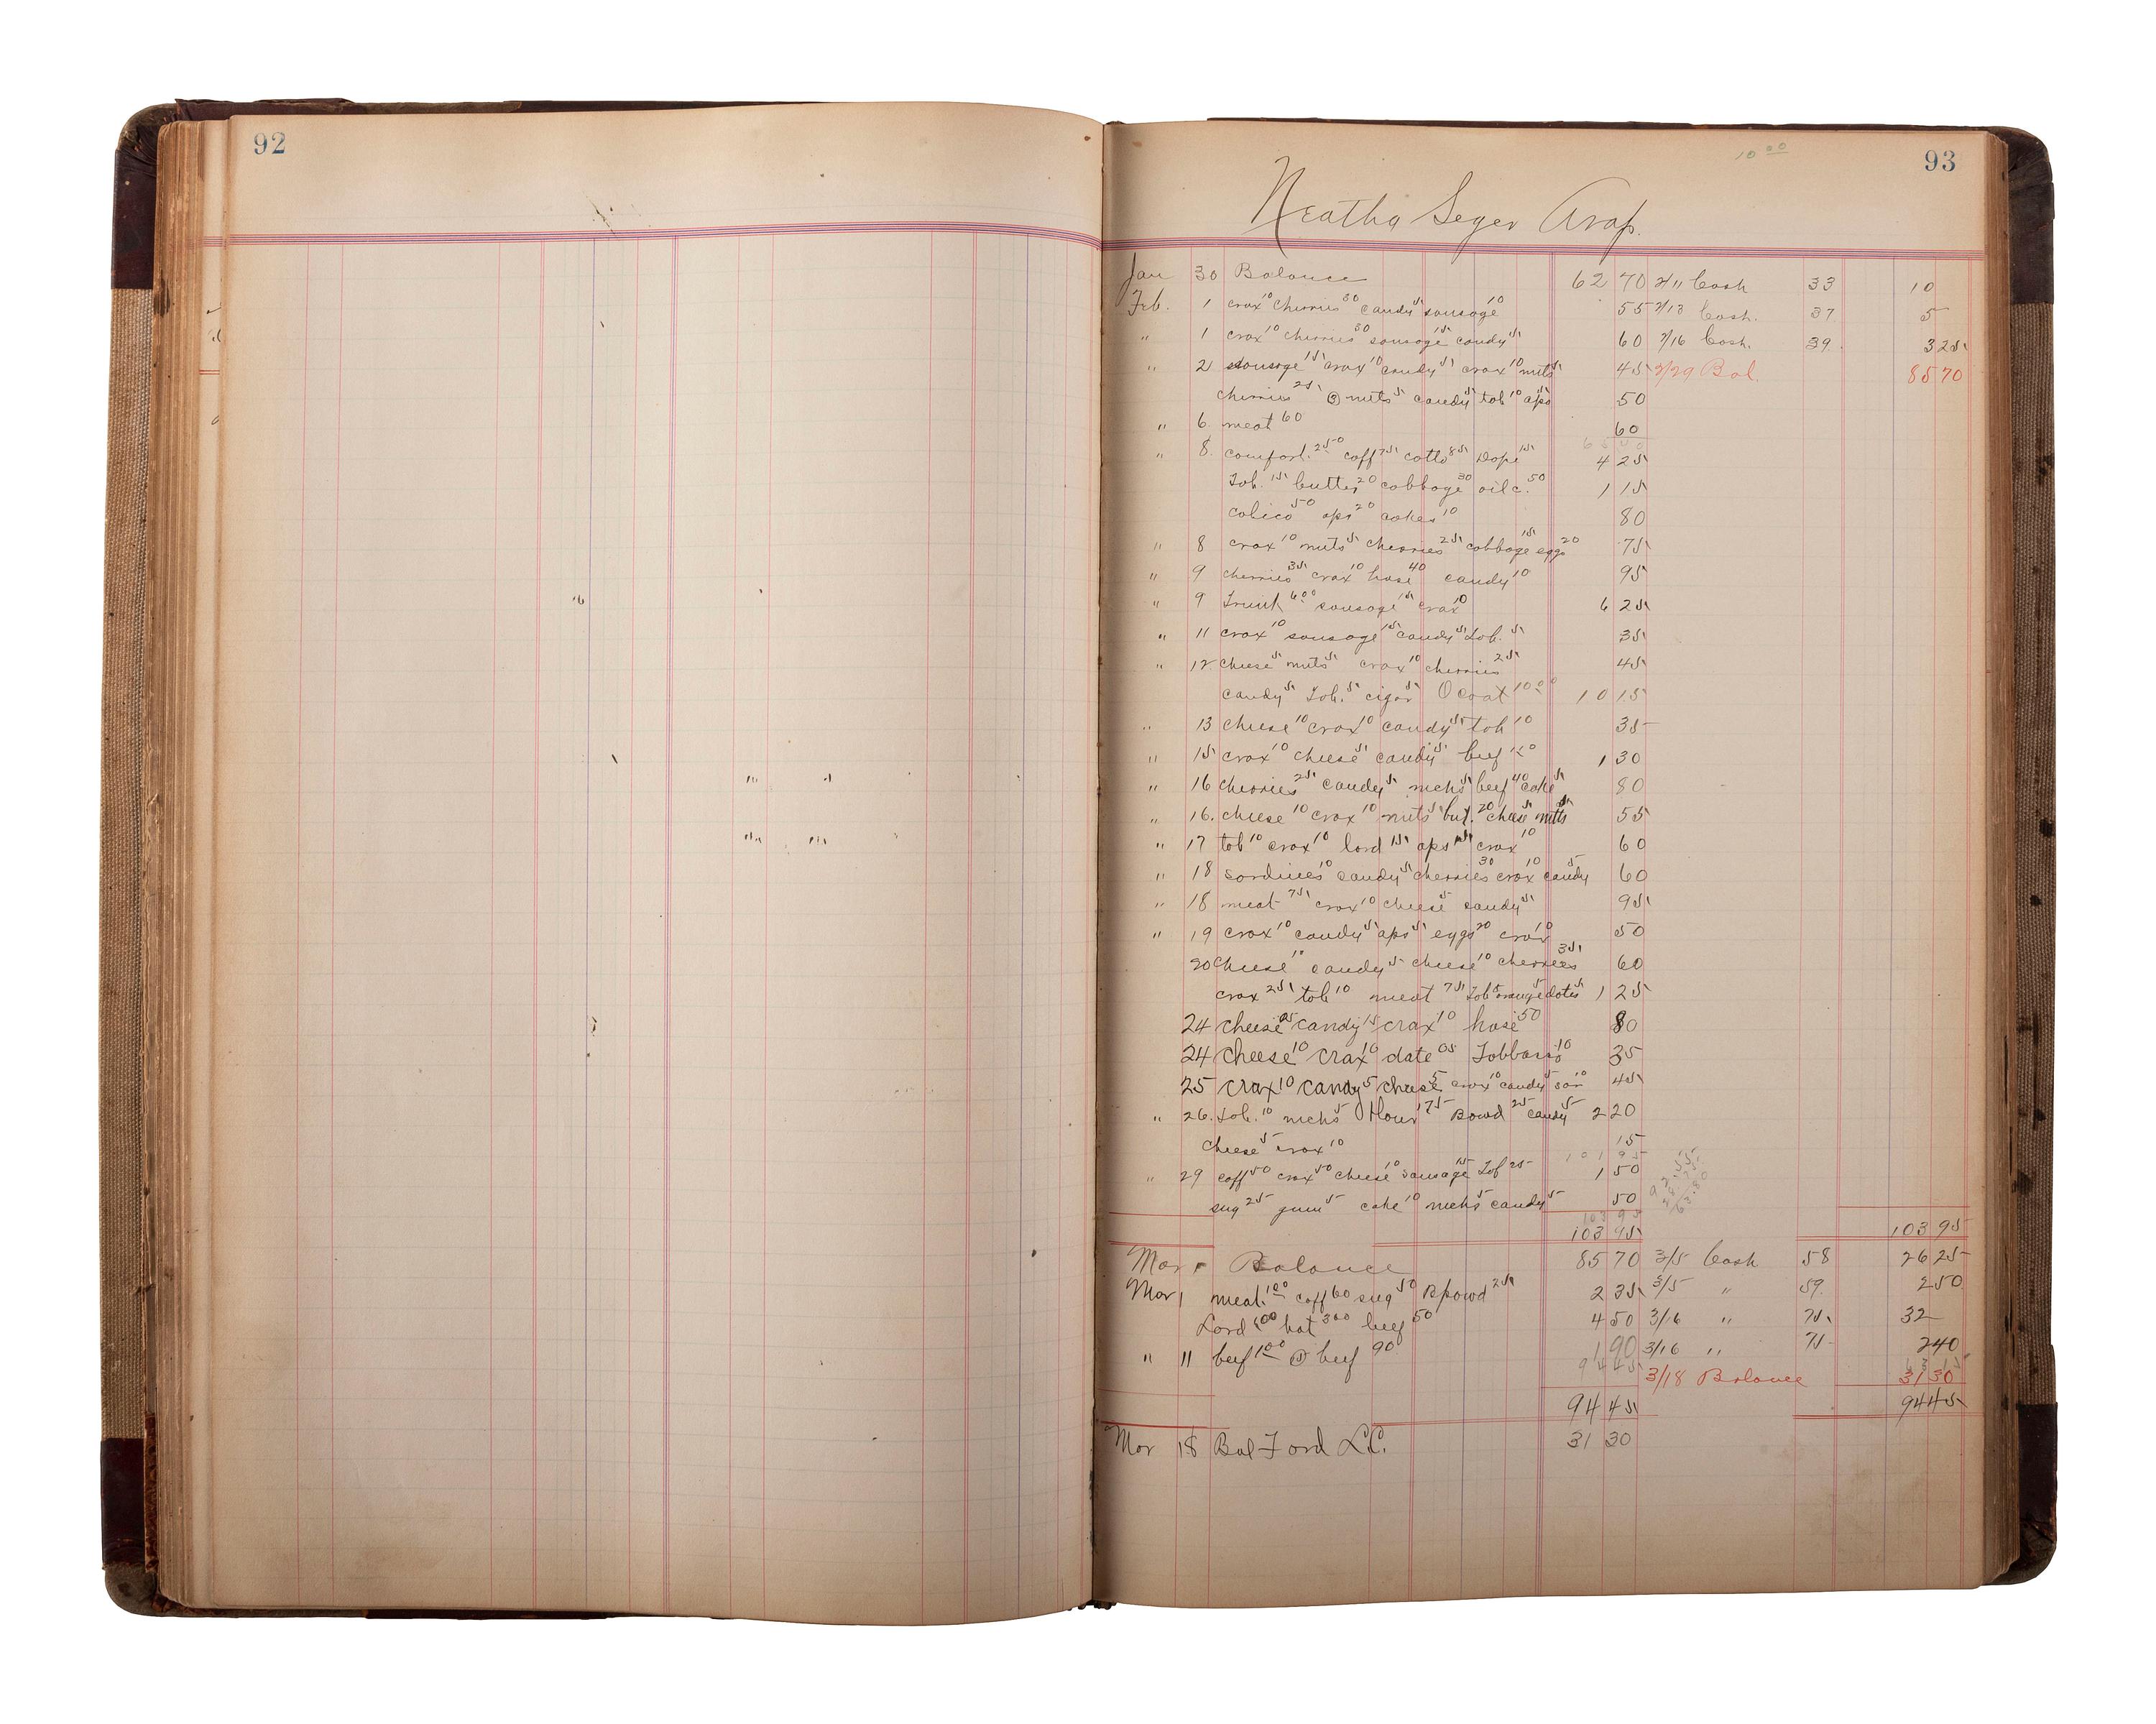 92
10 00
93
Neatha Seger Arap.
Jan 30 Balance 62 70 2/11 Cash 33 10
Feb. 1 crax 10 cherries 30 candy 5 sausage 10 55 2/13 Cash. 37 5
" 1 crax 10 cherries 30 sausage 15 candy 5 60 2/16 Cash. 39 3 25
" 2 sausage 15 crax 10 candy 5 crax 10 nuts 5 45 2/29 Bal. 85 70
cherries 25 nuts 5 candy 5 tob 10 aps 5 50
" 6. meat 60 60
" 8. comfort. 2 50 coff 75 cotto 85 Dope 15 4 25
Tob. 15 butter 20 cabbage 30 oil c. 50 1 15
calico 50 aps 20 cakes 10 80
" 8 crax 10 nuts 5 cherries 25 cabbage 15 eggs 20 75
" 9 cherries 35 crax 10 hose 40 candy 10 95
" 9 Trunk 6 00 sausage 15 crax 10 6 25
" 11 crax 10 sausage 15 candy 5 Tob. 5 35
" 12 cheese 5 nuts 5 crax 10 cherries 25 45
candy 5 Tob. 5 cigar 5 O coat 10 00 10 15
" 13 cheese 10 crax 10 candy 5 tob 10 35
" 15 crax 10 cheese 5 candy 5 beef 1 30
" 16 cherries 25 candy 5 mchs 5 beef 40 cake 5 80
" 16. cheese 10 crax 10 nuts 5 but. 20 cheese 5 nuts 5 55
" 17 tob 10 crax 10 lard 15 aps 15 crax 10 60
" 18 sardines 10 candy 5 cherries 30 crax 10 candy 5 60
" 18 meat 75 crax 10 cheese 5 candy 5 95
" 19 crax 10 candy 5 aps 5 eggs 20 crax 10 50
20 cheese 10 candy 5 cheese 10 cherries 35 60
crax 25 tob 10 meat 75 Tob 5 orange 5 dates 5 1 25
24 cheese 05 candy 15 crax 10 hose 50 80
24 cheese 10 crax 10 date 05 Tobbacco 10 35
25 crax 10 candy 5 cheese 5 crax 10 candy 5 sar 10 45
" 26. Tob. 10 mchs 5 Flour 1 75 Bowd 25 candy 5 2 20
cheese 5 crax 10 15
101 95
" 29 coff 50 crax 50 cheese 10 sausage 15 Tob 25 1 50
sug 25 gum 5 cake 10 mchs 5 candy 5 50
103 95
103 95 103 95
Mar 1 Balance 85 70 3/5 Cash 58 26 25
Mar 1 meat. 1 00 coff 60 sug 50 Bpowd 25 2 35 3/5 " 59. 2 50
Lard 1 00 hat 3 00 beef 50 4 50 3/16 " 75 32
" 11 beef 1 00 beef 90 1 90 3/16 " 75 2 40
94 45 3/18 Balance 31 30
94 45 94 45
Mar 18 Bal Ford L.C. 31 30